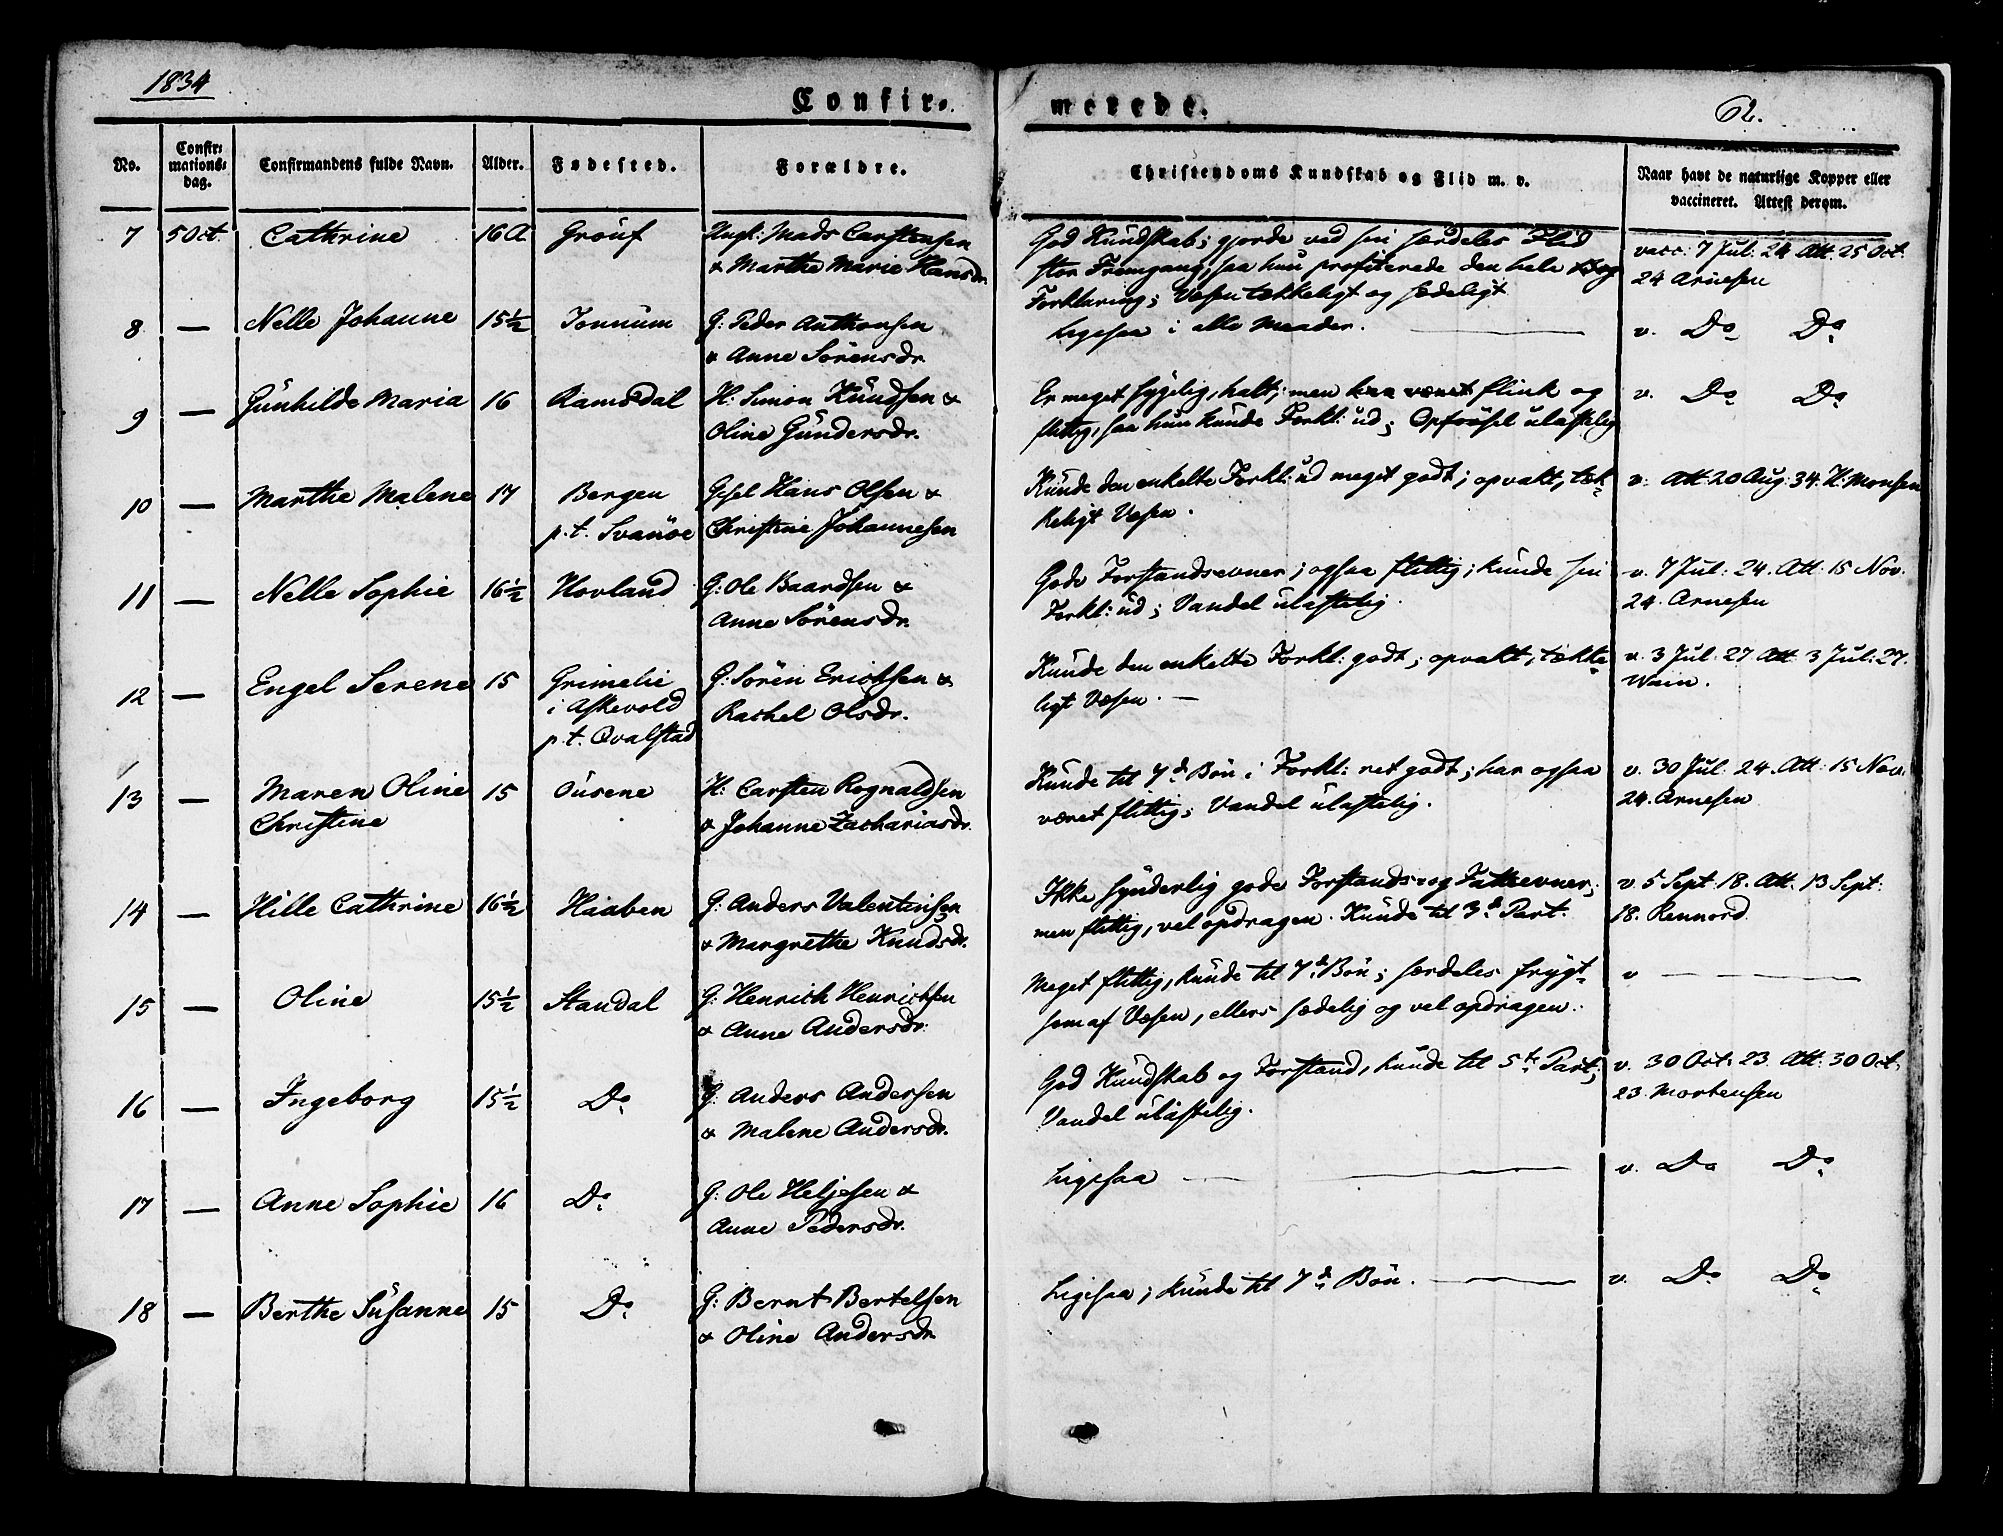 1834
Confir-
merede.
62.
No.
Confir-
mations-
dag.
Confirmandens fulde Navn.
Alder.
Fødested.
Forældre.
Christendoms Kundskab og Flid m. v.
Naar havt de naturlige Kopper eller
vaccineret. Attest derom.
7 5 Oct. Cathrine 16 A Gröuf Ungk: Mads Carstensen
& Marthe Marie Hansdr.
God Kundskab; gjorde ved sin særdeles Flid
stor Fremgang, saa hun profiterede den hele
Forklaring; Væsen tækkeligt og sædeligt
vacc: 7 Jul: 24 Att: 25 Oct:
24 Arnesen
8 — Nelle Johanne 15½ Tonnum G: Peder Anthonsen
& Anne Sörensdr.
Ligesaa i alle Maader. —
v. Do Do
9 — Gunhilde Maria 16 Ramsdal H: Simon Knudsen &
Oline Gundersdr.
Er meget sygelig, halt; men været flink og
flittig, saa hun kunde Forkl: ud; Opförsel ulastelig
v. Do Do
10 — Marthe Malene 17 Bergen
p.t. Svanöe
Gesel Hans Olsen &
Christine Johannesen
Kunde den enkelte Forkl: ud meget godt; opvakt, tæk-
keligt Væsen.
v. Att 20 Aug: 34. H: Monsen
11 — Nelle Sophie 16½ Hovland G: Ole Baardsen &
Anne Sörensdr.
Gode Forstandsevner; ogsaa flittig; kunde sin
Forkl: ud; Vandel ulastelig.
v. 7 Jul: 24. Att: 15 Nov.
24. Arnesen
12 — Engel Serene 15 Grimelie
i Askevold
p.t. Qvalstad
G: Sören Erichsen &
Rachel Olsdr.
Kunde den enkelte Forkl: godt; opvakt, tække-
ligt Væsen. —
v. 3 Jul: 27 Att 3 Jul: 27.
13 — Maren Oline
Christine
15 Ousene H: Carsten Rognaldsen
& Johanne Zachariasdr.
Kunde til 7d Bön i Forkl: ret godt; har ogsaa
været flittig; Vandel ulastelig.
v. 30 Jul: 24. Att: 15 Nov.
24. Arnesen
14 — Hille Cathrine 16½ Haaben G: Anders Valentinsen
& Margrethe Knudsdr.
Ikke synderlig gode Forstands- og Fatteevner;
men flittig, vel opdragen. Kunde til 3d Part.
v. 5 Sept: 18. Att: 13 Sept:
18. Rennord
15 — Oline 15½ Standal G: Henrich Henrichsen
& Anne Andersdr.
Meget flittig, kunde til 7d Bön; særdeles frygt-
som af Væsen, ellers sædelig og vel opdragen.
v —
16 — Ingeborg 15½ Do G: Anders Andersen
& Malene Andersdr.
God Kundskab og Forstand, kunde til 5te Part;
Vandel ulastelig.
v. 30 Oct: 23. Att: 30 Oct.
23. Mortensen
17 — Anne Sophie 16 Do G: Ole Heljesen &
Anne Pedersdr.
Ligesaa —
v. Do Do
18 — Berthe Susanne 15 Do G: Bernt Bertelsen
& Oline Andersdr
Ligesaa; kunde til 7d Bön. —
v. Do Do